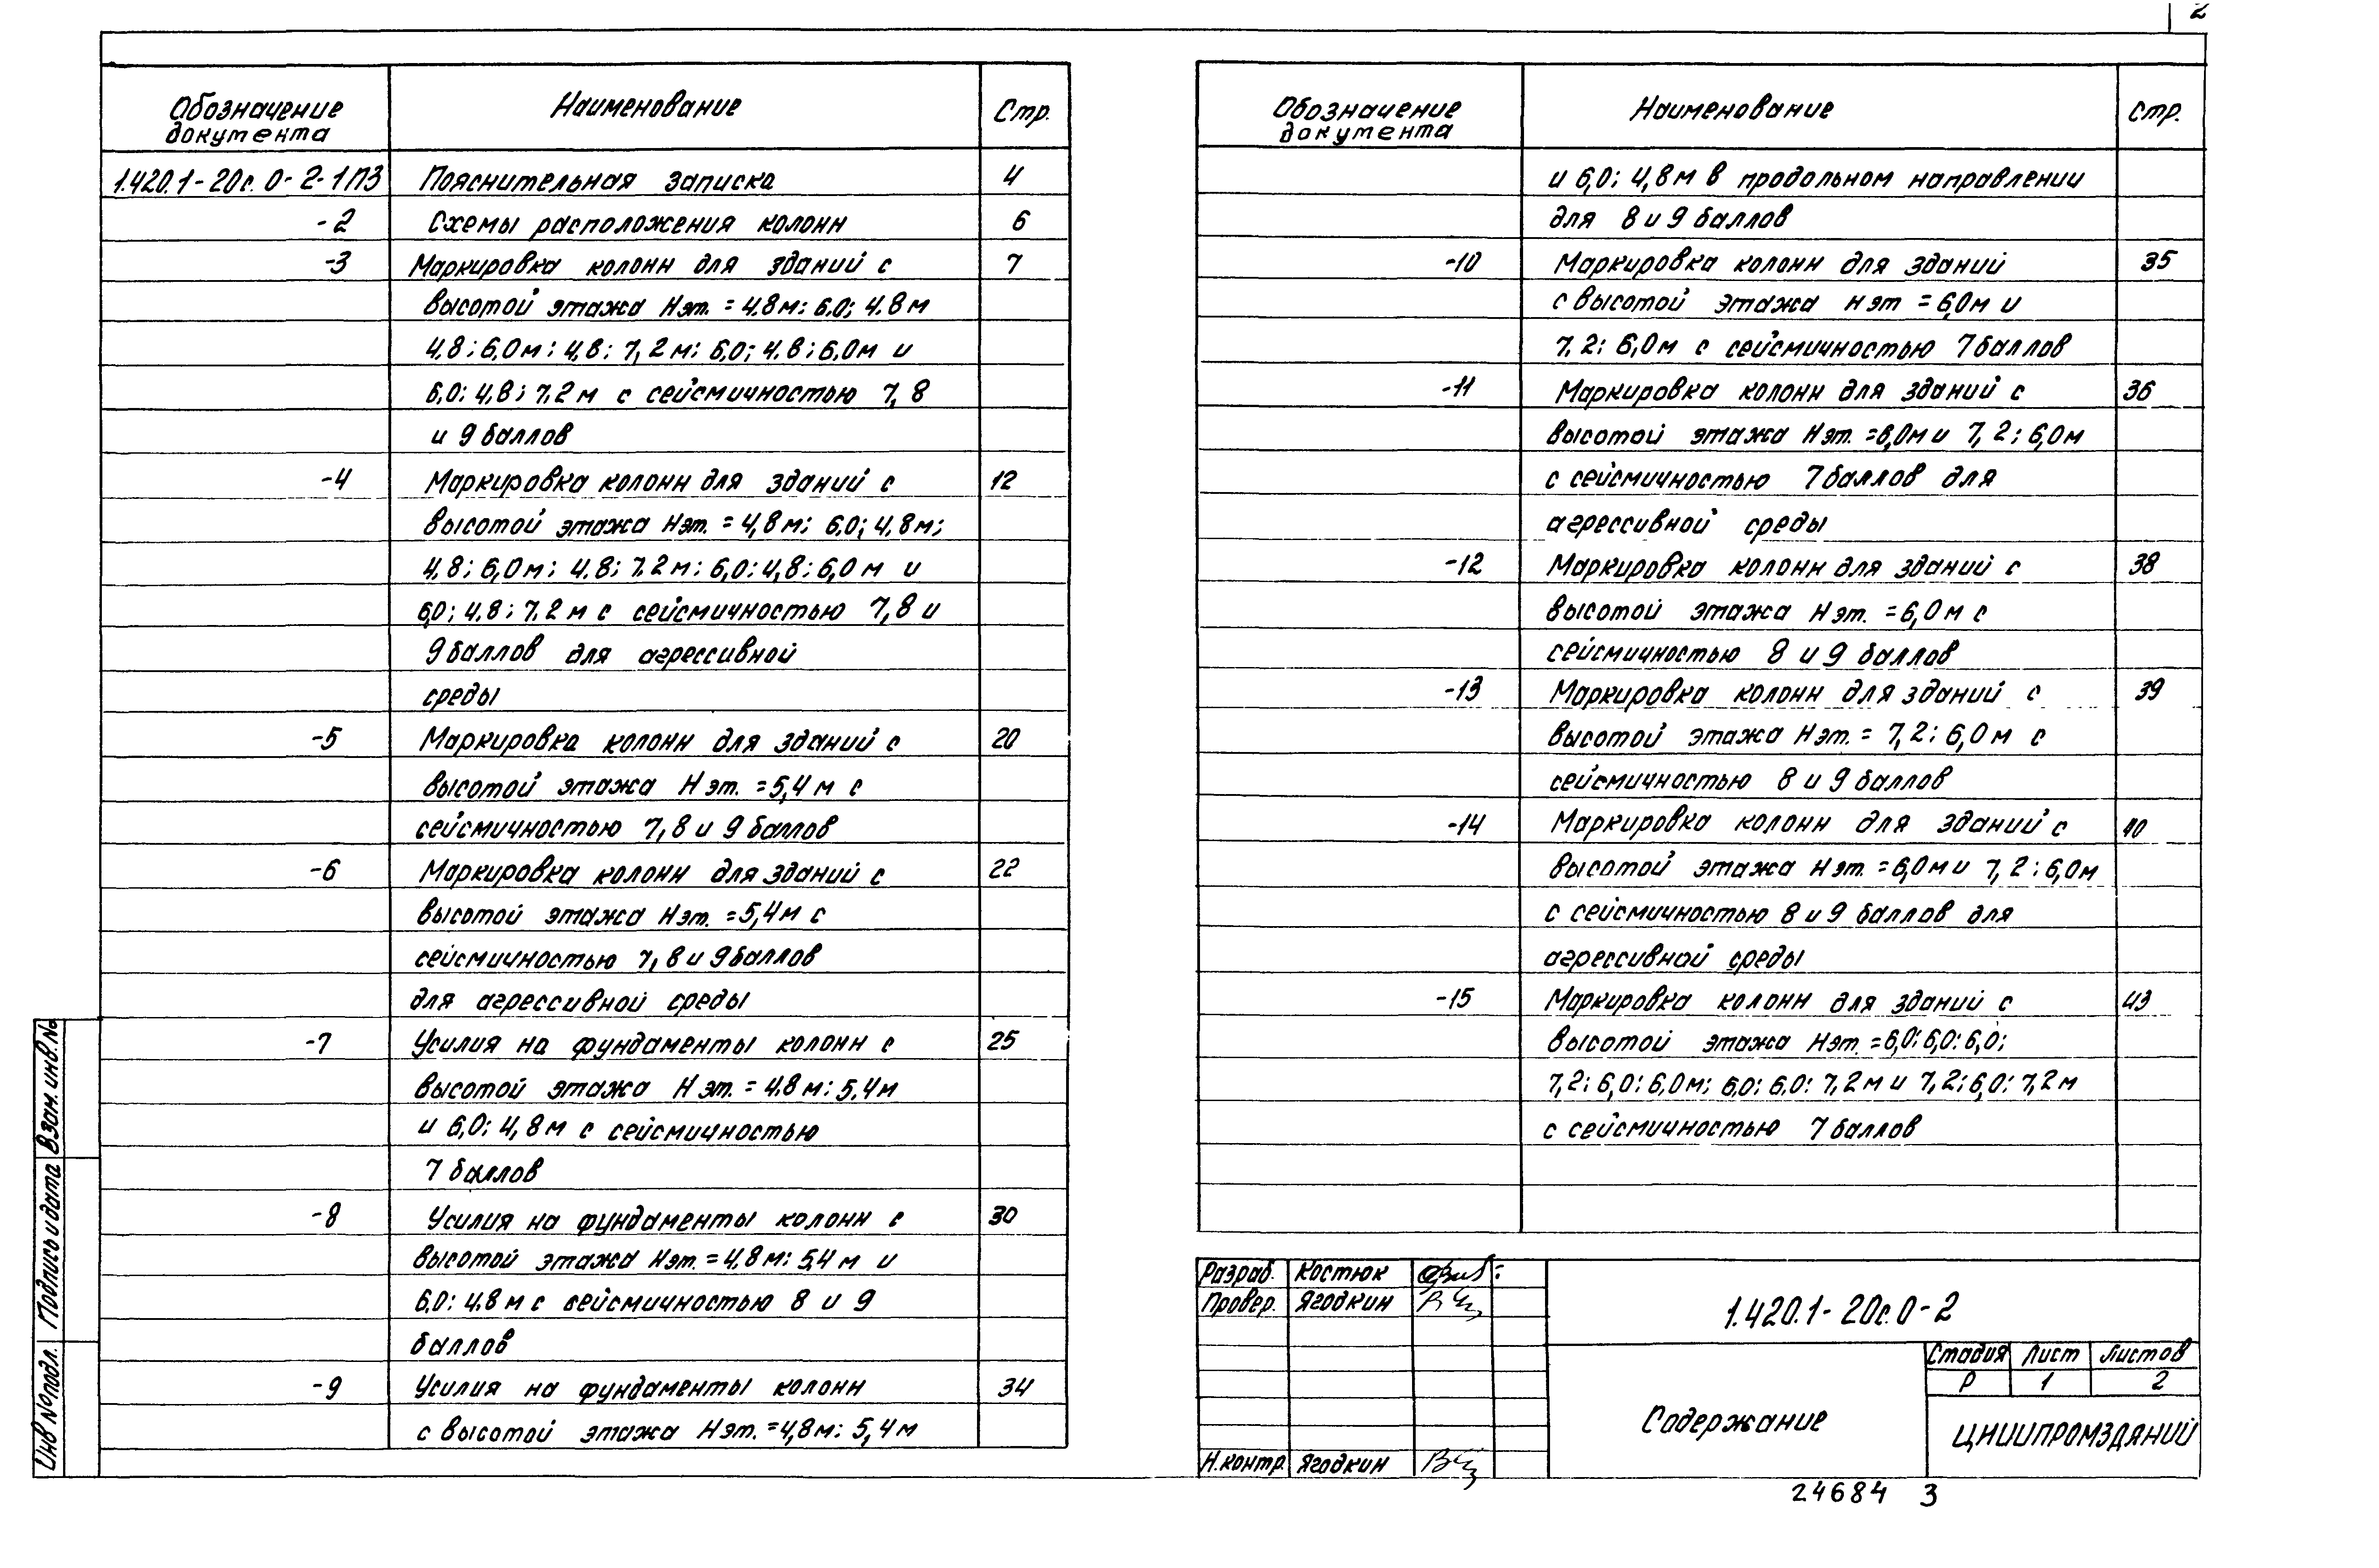 2
Обозначение документа Наименование Стр.
1.420.1-20с.0-2-1ПЗ Пояснительная записка 4
-2 Схемы расположения колонн 6
-3 Маркировка колонн для зданий с 7
высотой этажа Нэт. = 4.8м; 6.0; 4.8м
4,8; 6,0м; 4,8; 7,2м; 6,0; 4.8; 6,0м и
6,0; 4,8; 7,2м с сейсмичностью 7, 8
и 9 баллов
-4 Маркировка колонн для зданий с 12
высотой этажа Нэт. = 4,8м; 6.0; 4,8м;
4,8; 6,0м; 4.8; 7.2м; 6,0; 4,8; 6,0м и
6,0; 4.8; 7.2м с сейсмичностью 7, 8 и
9 баллов для агрессивной
среды
-5 Маркировка колонн для зданий с 20
высотой этажа Нэт. = 5,4м с
сейсмичностью 7, 8 и 9 баллов
-6 Маркировка колонн для зданий с 22
высотой этажа Нэт. = 5,4м с
сейсмичностью 7, 8 и 9 баллов
для агрессивной среды
-7 Усилия на фундаменты колонн с 25
высотой этажа Нэт. = 4.8м; 5,4м
и 6,0; 4,8м с сейсмичностью
7 баллов
-8 Усилия на фундаменты колонн с 30
высотой этажа Нэт. = 4,8м; 5,4м и
6,0; 4.8м с сейсмичностью 8 и 9
баллов
-9 Усилия на фундаменты колонн 34
с высотой этажа Нэт. = 4,8м; 5,4м
Обозначение документа Наименование Стр.
и 6,0; 4,8м в продольном направлении
для 8 и 9 баллов
-10 Маркировка колонн для зданий 35
с высотой этажа Нэт = 6,0м и
7,2; 6,0м с сейсмичностью 7 баллов
-11 Маркировка колонн для зданий с 36
высотой этажа Нэт. = 6,0м и 7,2; 6,0м
с сейсмичностью 7 баллов для
агрессивной среды
-12 Маркировка колонн для зданий с 38
высотой этажа Нэт. = 6,0м с
сейсмичностью 8 и 9 баллов
-13 Маркировка колонн для зданий с 39
высотой этажа Нэт. = 7,2; 6,0м с
сейсмичностью 8 и 9 баллов
-14 Маркировка колонн для зданий с 40
высотой этажа Нэт. = 6,0м и 7,2; 6,0м
с сейсмичностью 8 и 9 баллов для
агрессивной среды
-15 Маркировка колонн для зданий с 43
высотой этажа Нэт. = 6,0; 6,0; 6,0;
7,2; 6,0; 6,0м; 6,0; 6,0; 7,2м и 7,2; 6,0; 7,2м
с сейсмичностью 7 баллов
Разраб. Костюк
Провер. Ягодкин
Н.контр. Ягодкин
1.420.1-20с.0-2
Содержание
Стадия Лист Листов
Р 1 2
ЦНИИПРОМЗДАНИЙ
24684 3
Инв № подл. Подпись и дата Взам. инв. №